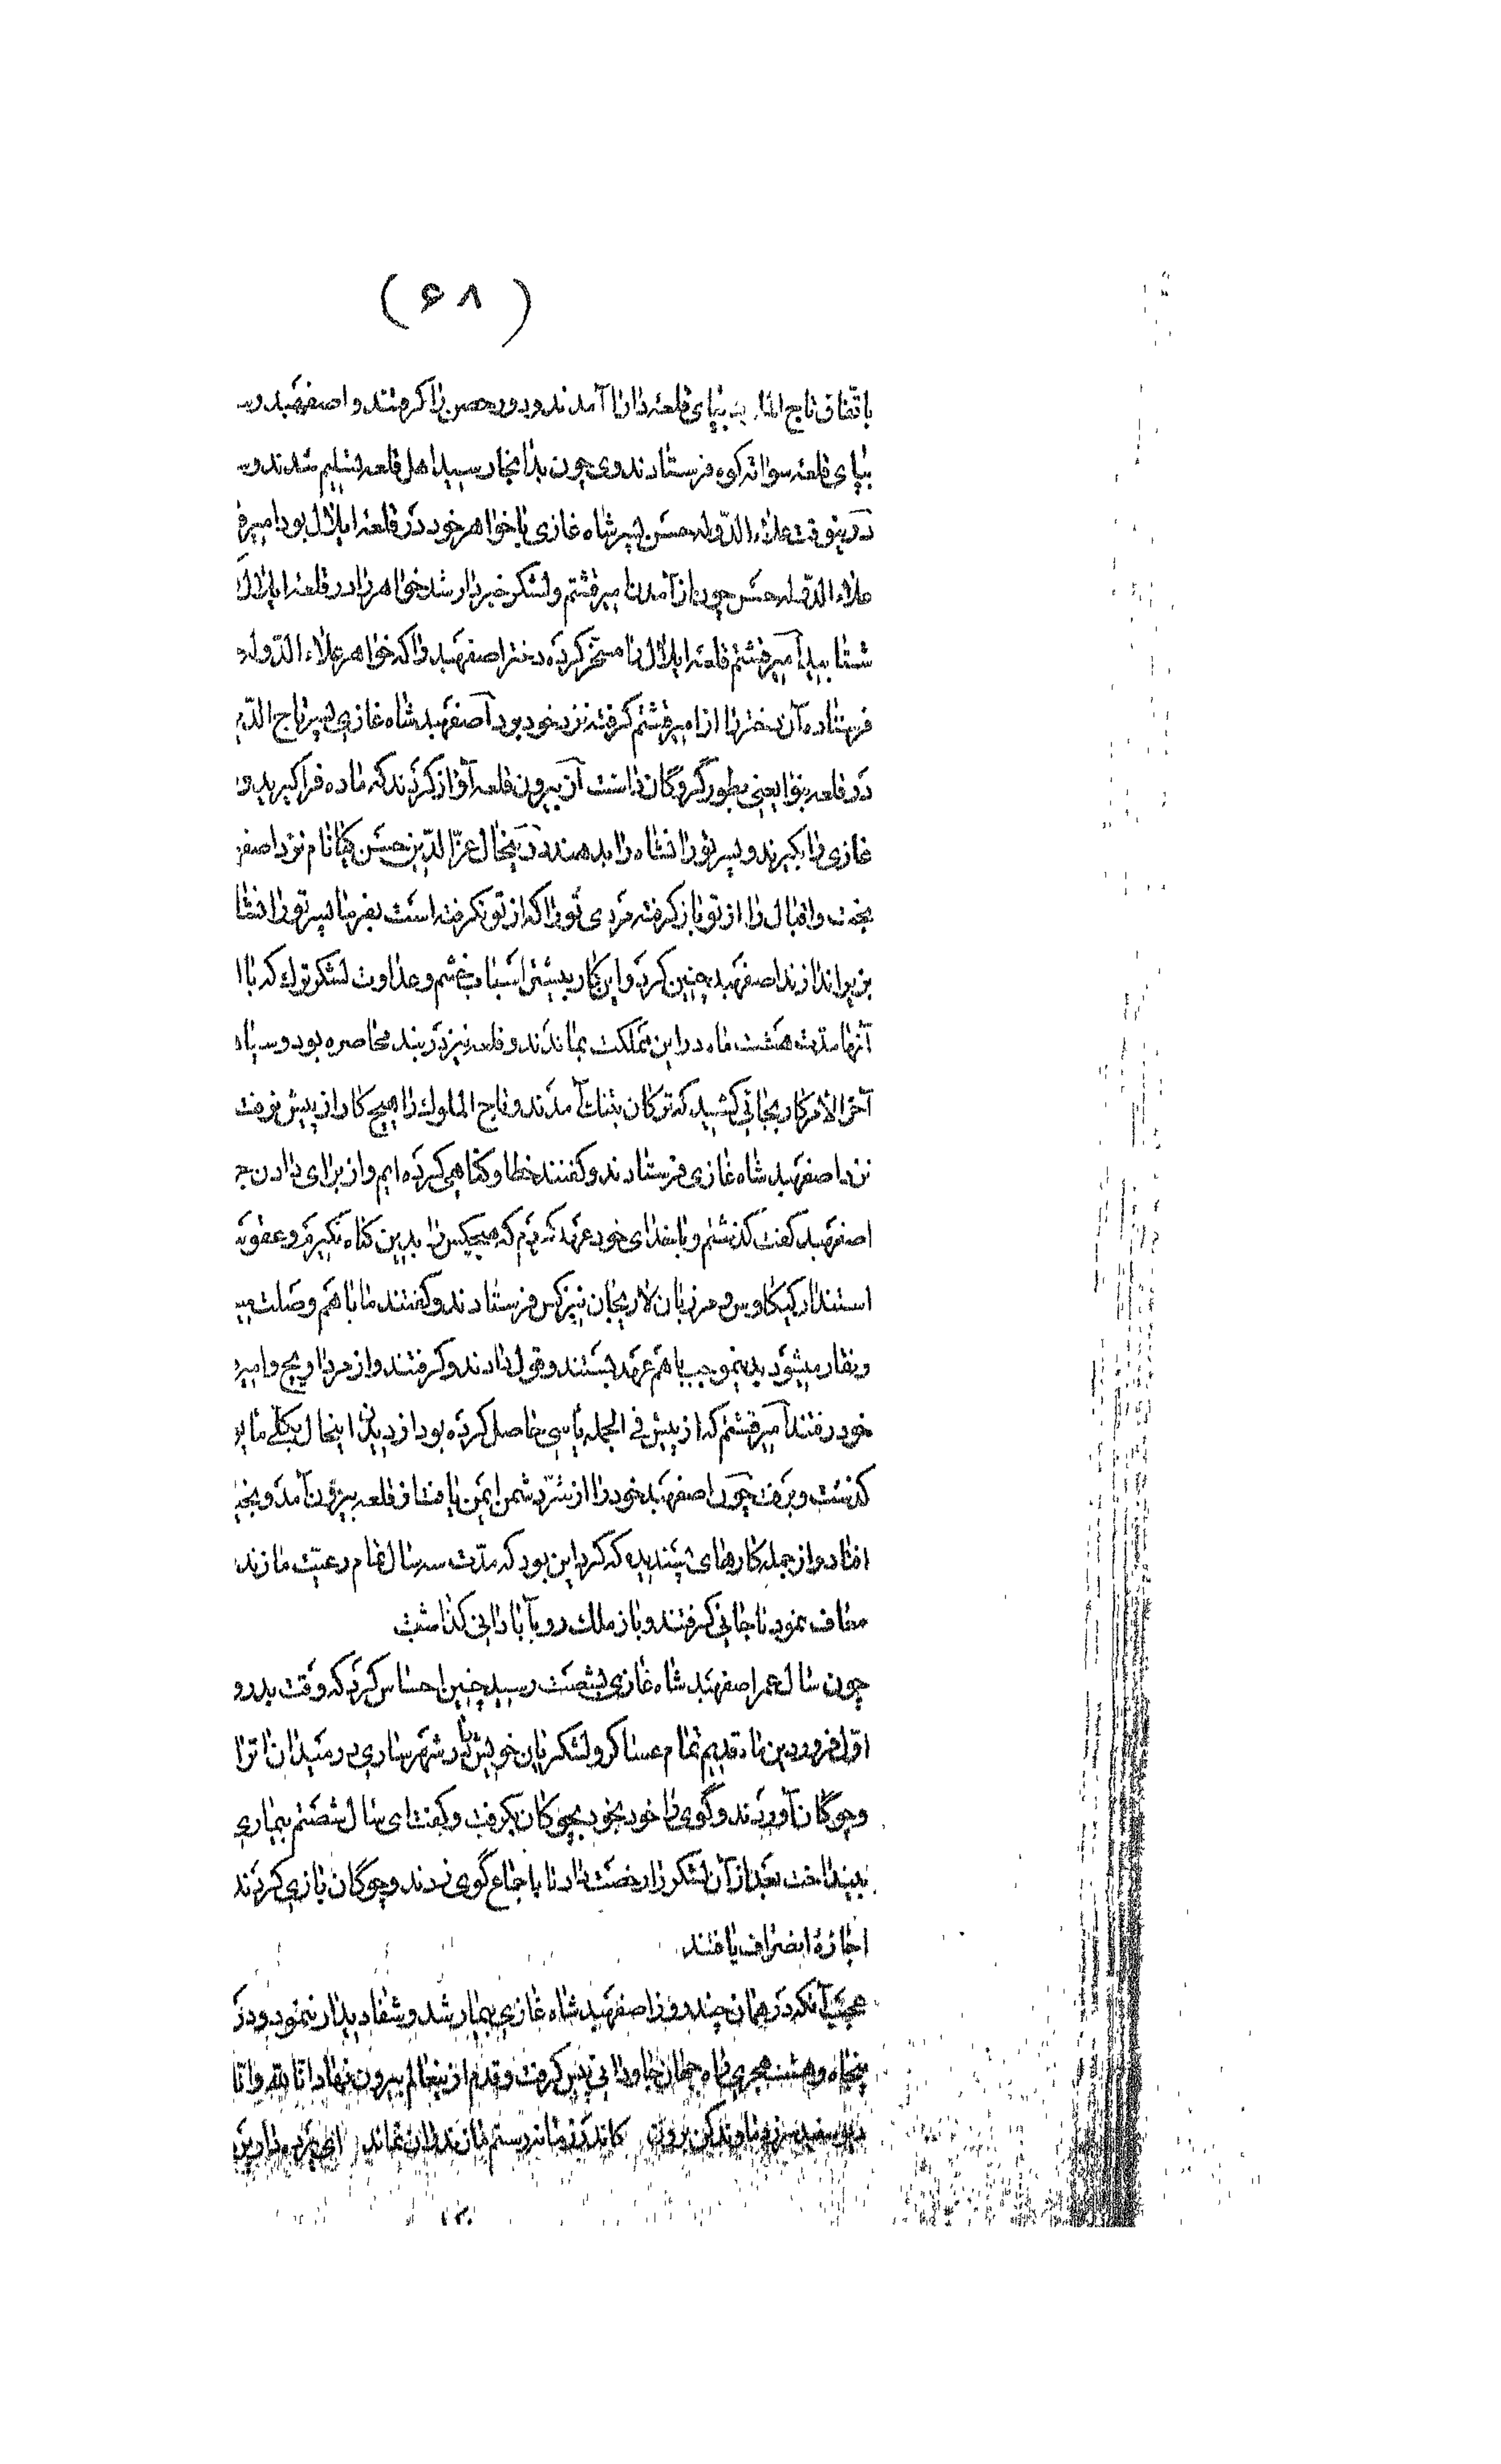 (۶۸)
باتّفاق تاج الملک بپای قلعه دارا آمدند و دور حصن را گرفتند و اصفهبد و
بپای قلعه سواته کوه فرستادند وی چون بدانجا رسید اهل قلعه تسلیم شدند و
درینوقت علاء الدّوله حسن پسر شاه غازی با خواهر خود در قلعه ایلال بود امیر
علاء الدّوله حسن چون از آمدن امیر قشتم و لشکر خبردار شد خواهر را در قلعه ایلال
امیر قشتم قلعه ایلال را مسخّر کرده دختر اصفهبد را که خواهر علاء الدّوله
فرستاده آن دختر را از امیر قشتم گرفته نزد خود بود اصفهبد شاه غازی پسر تاج
در قلعه بنوا یعنی بطور گروگان داشت از بیرون قلعه آواز کردند که ماده فرا گیرید و
غازی را بگیرند و پسر تورانشاه را بدهند در اینحال عزّ الدّین حسن کیا نام نزد
بخت و اقبال را از تو باز گرفته مردی تو را که از تو نگرفته است بفرما پسر تورانشا
بزیر اندازند اصفهبد چنین کرد و این کار بیشتر اسباب خشم و عداوت لشکر ترک که با
آنها مدّت هشت ماه در این مملکت بماندند و قلعه نیز در بند محاصره بود و
آخر الامر کار بجائی کشید که ترکان بتنگ آمدند و تاج الملوک را هیچ کار از پیش نرفت
نزد اصفهبد شاه غازی فرستادند و گفتند خطا و گناهی کرده ایم و از برای دادن
اصفهبد گفت گذشتم و با خدای خود عهد کردم که هیچکس را بدین گناه نگیرم و عقوبة
استندار کیکاوس و مرزبان لاریجان نیز کس فرستادند و گفتند ما با هم وصلت
و نقار میشود بدینموجب با هم عهد بستند و قول دادند و گرفتند و از مرداویج و امیر
خود رفتند امیر قشتم که از پیش فی الجمله یاسی حاصل کرده بود از دیدن اینحال بکلّی
گذشت و برفت چون اصفهبد خود را از شرّ دشمن ایمن یافت از قلعه بیرون آمد و
افتاد و از جمله کارهای پسندیده که کرد این بود که مدّت سه سال تمام رعیّت مازند
معاف نمود تا جانی گرفتند و باز ملک رو بآبادانی گذاشت
چون سال عمر اصفهبد شاه غازی بشصت رسید چنین احساس کرد که وقت بدرو
اوّل فروردین ماه قدیم تمام عساکر و لشکریان خویش را در شهر ساری در میدان
و چوگان آوردند و گوی را خود بخود بچوگان بگرفت و گفت ای سال شصتم بیماری
بینداخت بعد از آن لشکر را رخصت داد تا باجماع گوی زدند و چوگان بازی کردند
اجازهٔ انصراف یافتند
عجب آنکه در همان چند روز اصفهبد شاه غازی بیمار شد و شفا دیدار ننمود و در
پنجاه و هشت هجری راه جهان جاودانی پیش گرفت و قدم از ینعالم بیرون نهاد انّا لله و انّا
دیو سفید سر ز دماوند کن برون کاندر زمانه رستم مازندران نماند